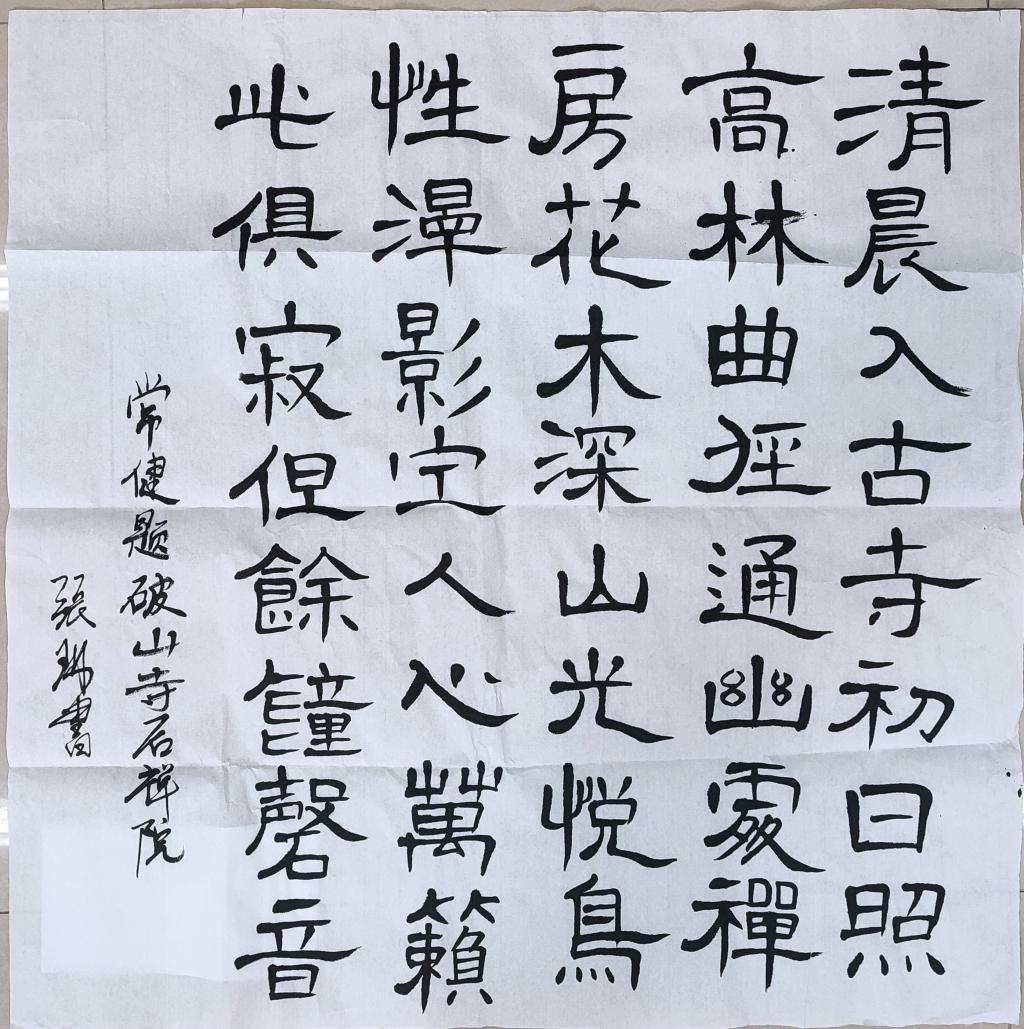 清晨入古寺初日照
高林曲徑通幽處禪
房花木深山光悦鳥
性潭影空人心萬籟
此俱寂但餘鐘磬音
常健题破山寺后禅院
張書